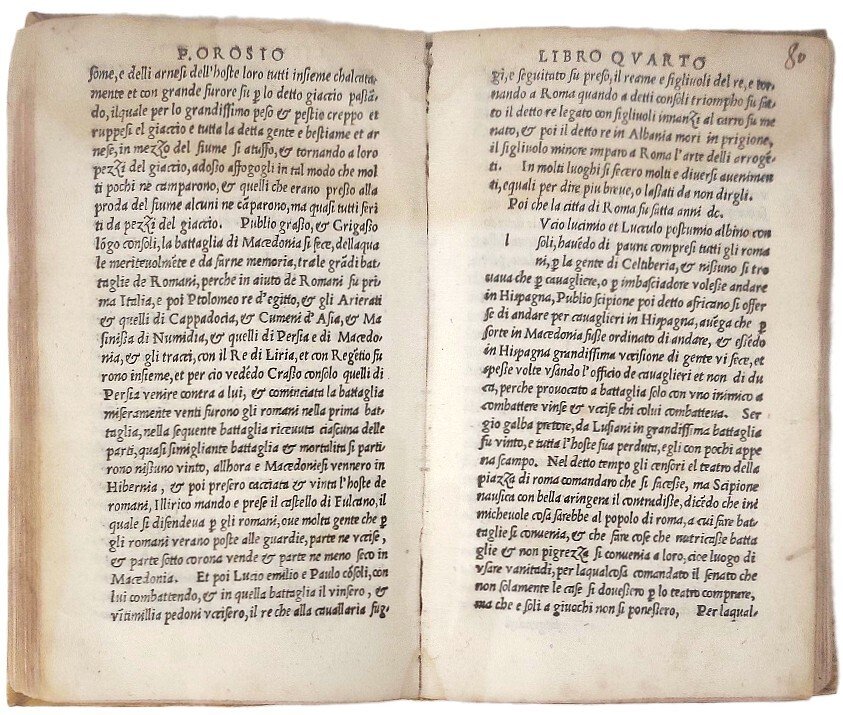 P. OROSIO
some, e delli arnesi dell'hoste loro tutti insieme chalcata-
mente et con grande furore su ꝑ lo detto giaccio passã-
do, il quale per lo grandissimo peso & pestio creppo et
ruppesi el giaccio e tutta la detta gente e bestiame et ar
nese, in mezzo del fiume si atuffo, & tornando a loro
pezzi del giaccio, adosso affogogli in tal modo che mol
ti pochi ne camparono, & quelli che erano presso alla
proda del fiume alcuni ne cãparono, ma quasi tutti feri
ti da pezzi del giaccio. Publio grasso, & Grigasso
lõgo consoli, la battaglia di Macedonia si fece, dellaqua
le meriteuolmẽte e da farne memoria, tra le grãdi bat-
taglie de Romani, perche in aiuto de Romani fu pri
ma Italia, e poi Ptolomeo re d'egitto, & gli Arierati
& quelli di Cappadocia, & Cumeni d'Asia, & Ma
sinissa di Numidia, & quelli di Persia e di Macedo-
nia, & gli tracci, con il Re di Liria, et con Regẽtio fu
rono insieme, et per cio vedẽdo Crasso consolo quelli di
Persia venire contra a lui, & cominciata la battaglia
miseramente venti furono gli romani nella prima bat-
taglia, nella sequente battaglia riceuuta ciascuna delle
parti, quasi simigliante battaglia & mortalita si parti
rono nissuno vinto, allhora e Macedoniesi vennero in
Hibernia, & poi presero cacciata & vinta l'hoste de
romani, Illirico mando e prese il castello di Fulcano, il
quale si difendeua ꝑ gli romani, oue molta gente che ꝑ
gli romani verano poste alle guardie, parte ne vccise,
& parte sotto corona vende & parte ne meno seco in
Macedonia. Et poi Lucio emilio e Paulo cõsoli, con
lui combattendo, & in quella battaglia il vinsero, &
vītimillia pedoni vccisero, il re che alla cauallaria fug-
LIBRO QVARTO
80
gi, e seguitato fu preso, il reame e figliuoli del re, e tor-
nando a Roma quando a detti consoli triompho fu fat
to il detto re legato con figliuoli innanzi al carro fu me
nato, & poi il detto re in Albania mori in prigione,
il figliuolo minore imparo a Roma l'arte delli arrogẽ-
ti. In molti luoghi si fecero molti e diuersi auenimen
ti, equali per dire piu breue, o lassati da non dirgli.
Poi che la citta di Roma fu fatta anni dc.
l Vcio lucimio et Luculo postumio albino con
soli, hauẽdo di paura compresi tutti gli roma
ni, ꝑ la gente di Celtiberia, & nissuno si tro
uaua che ꝑ cauagliere, o ꝑ imbasciadore volesse andare
in Hispagna, Publio scipione poi detto africano si offer
se di andare per cauaglieri in Hispagna, auẽga che ꝑ
sorte in Macedonia fusse ordinato di andare, & essẽdo
in Hispagna grandissima vccisione di gente vi fece, et
spesse volte vsando l'officio de cauaglieri et non di du
ca, perche prouocato a battaglia solo con vno inimico a
combattere vinse & vccise chi colui combatteua. Ser
gio galba pretore, da Lusiani in grandissima battaglia
fu vinto, e tutta l'hoste fua perduta, egli con pochi appe
na scampo. Nel detto tempo gli censori el teatro della
piazza di roma comandaro che si facesse, ma Scipione
nausica con bella aringera il contradisse, dicẽdo che ini
micheuole cosa sarebbe al popolo di roma, a cui fare bat-
taglie si conuenia, & che fare cose che nutricasse batta
glie & non pigrezza si conuenia a loro, cioe luogo di
vsare vanitadi, per laqualcosa comandato il senato che
non solamente le case si douessero ꝑ lo teatro comprare,
ma che e soli a giuochi non si ponessero, Per laqual-